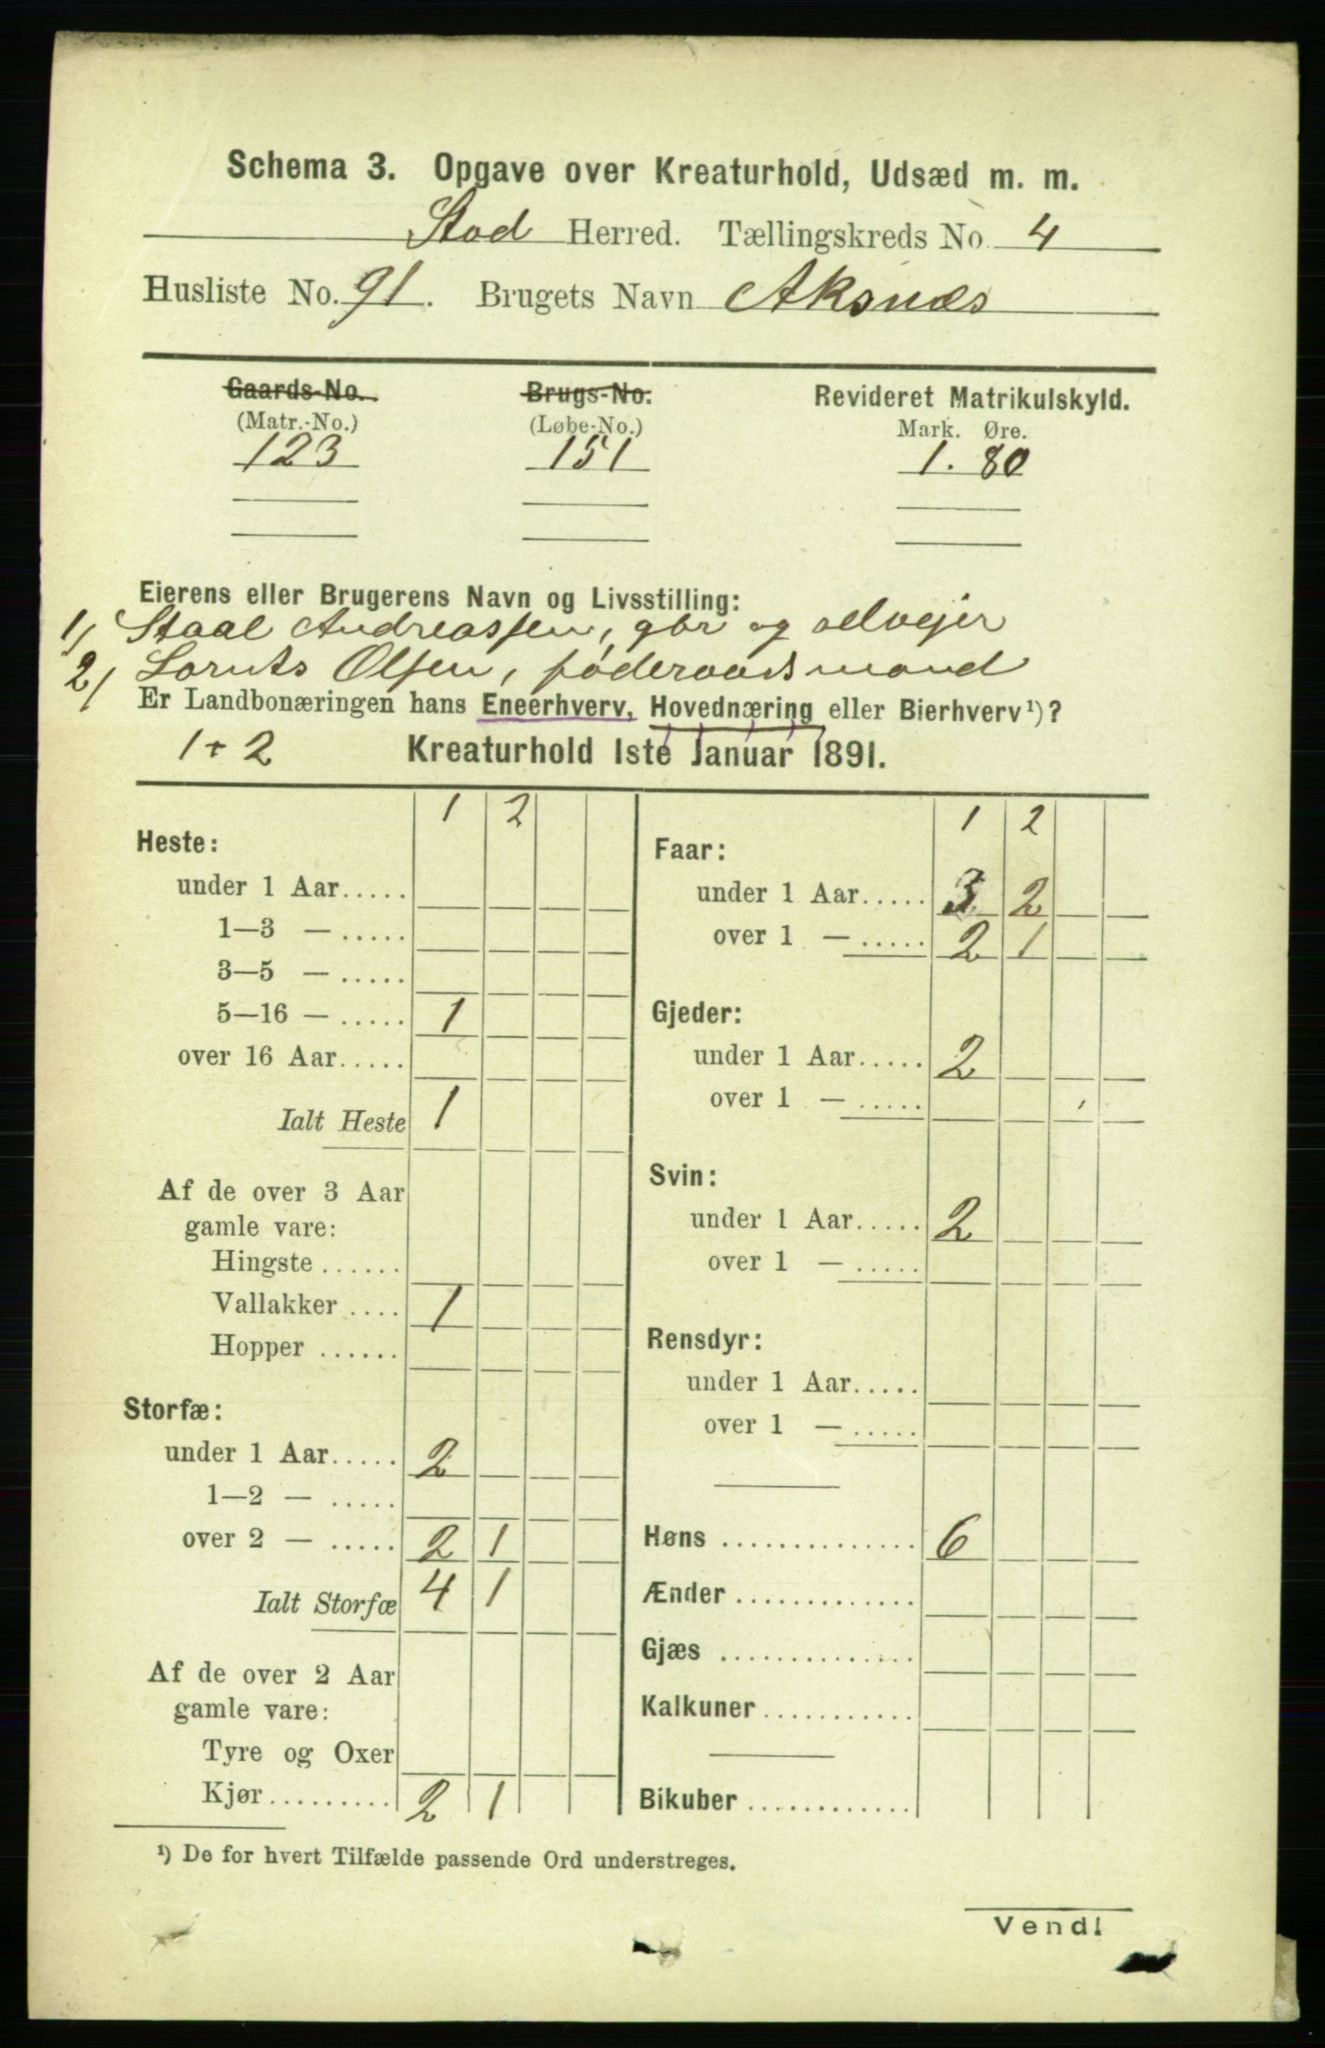 Schema 3. Opgave over Kreaturhold, Udsæd m. m.
Stod Herred. Tællingskreds No. 4
Husliste No. 91. Brugets Navn Aksnæs
Gaards-No. Brugs-No. Revideret Matrikulskyld.
(Matr.-No.) (Løbe-No.) Mark. Øre.
123 151 1. 80
Eierens eller Brugerens Navn og Livsstilling:
1/ Staal Andreassen, gbr og selvejer
2/ Lornts Olsen, føderaadsmand
Er Landbonæringen hans Eneerhverv, Hovednæring eller Bierhverv ¹)?
1 + 2 Kreaturhold 1ste Januar 1891.
1 2
Heste:
under 1 Aar.....
1—3 — .....
3—5 — .....
5—16 — ..... 1
over 16 Aar.....
Ialt Heste 1
Af de over 3 Aar
gamle vare:
Hingste ......
Vallakker .... 1
Hopper ......
Storfæ:
under 1 Aar..... 2
1—2 — .....
over 2 — ..... 2 1
Ialt Storfæ 4 1
Af de over 2 Aar
gamle vare:
Tyre og Oxer
Kjør......... 2 1
1 2
Faar:
under 1 Aar..... 3 2
over 1 — ..... 2 1
Gjeder:
under 1 Aar..... 2
over 1 — .....
Svin:
under 1 Aar..... 2
over 1 — .....
Rensdyr:
under 1 Aar.....
over 1 — .....
Høns .............. 6
Ænder .............
Gjæs ..............
Kalkuner...........
Bikuber ............
¹) De for hvert Tilfælde passende Ord understreges.
Vend!